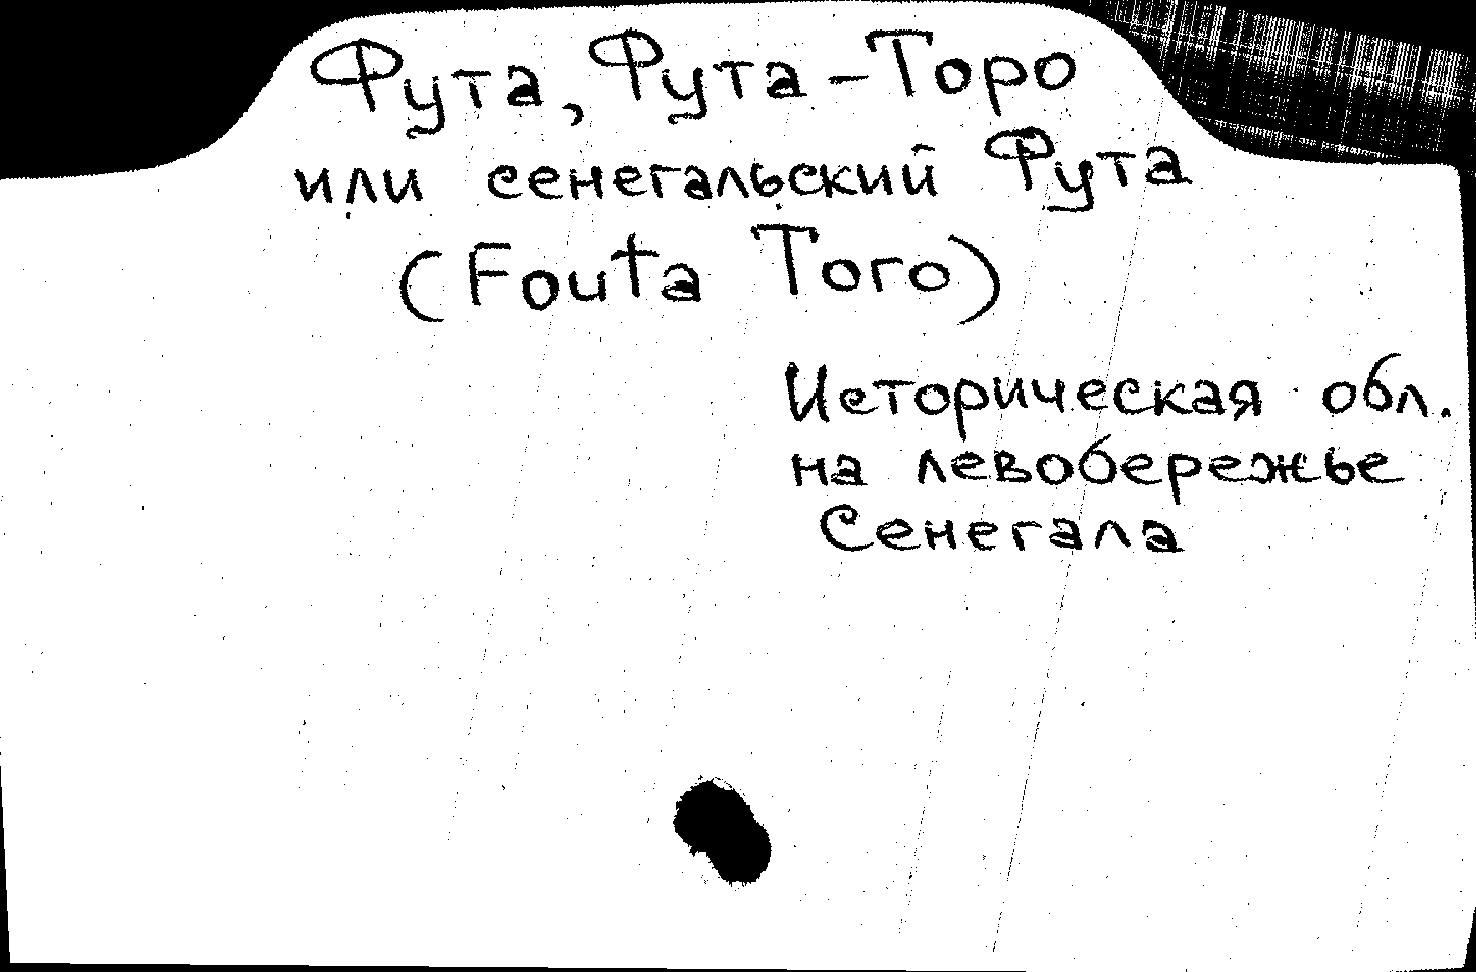 Фута, Фута-Торо
или сенегальский Фута
(Fouta Toro)
Историческая обл.
на левобережье
Сенегала